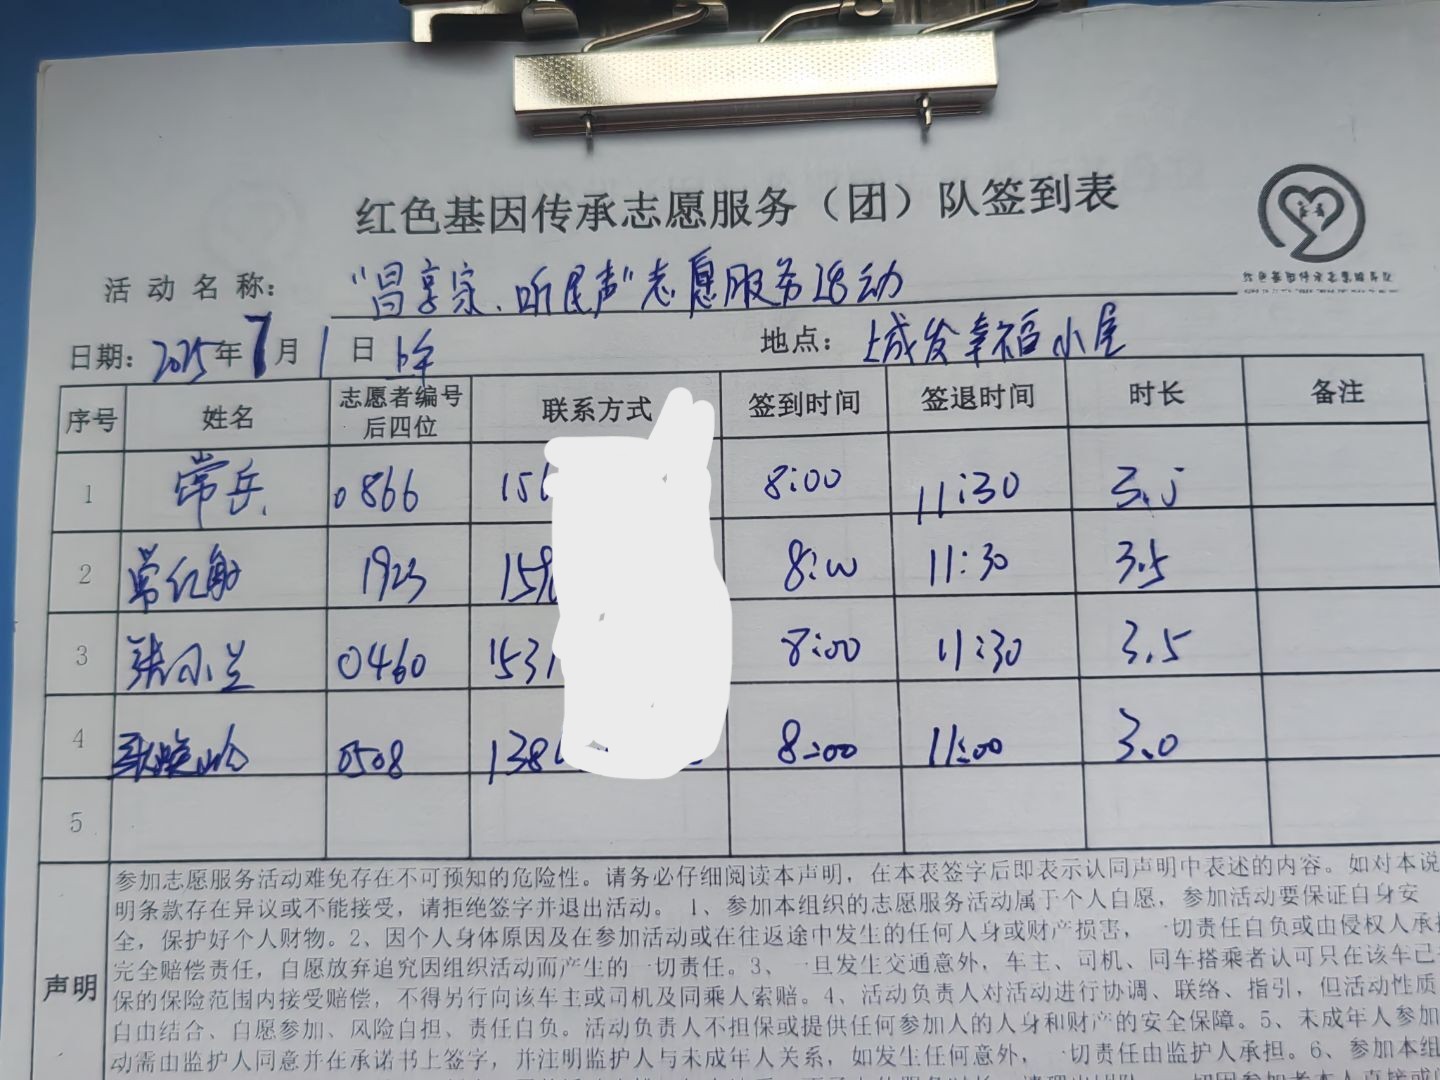 红色基因传承志愿服务（团）队签到表
活动名称：“昌享家、听民声”志愿服务活动
日期：2025年7月1日 地点：城发幸福小屋
序号 姓名 志愿者编号后四位 联系方式 签到时间 签退时间 时长 备注
1 常岳 0866 156 8:00 11:30 3.5
2 常红敏 1923 159 8:00 11:30 3.5
3 张小兰 0460 1531 8:00 11:30 3.5
4 0508 138 8:00 11:00 3.0
5
声明
参加志愿服务活动难免存在不可预知的危险性。请务必仔细阅读本声明，在本表签字后即表示认同声明中表述的内容。如对本说
明条款存在异议或不能接受，请拒绝签字并退出活动。1、参加本组织的志愿服务活动属于个人自愿，参加活动要保证自身安
全，保护好个人财物。2、因个人身体原因及在参加活动或在往返途中发生的任何人身或财产损害，一切责任自负或由侵权人承担
完全赔偿责任，自愿放弃追究因组织活动而产生的一切责任。3、一旦发生交通意外，车主、司机、同车搭乘者认可只在该车已
保的保险范围内接受赔偿，不得另行向该车主或司机及同乘人索赔。4、活动负责人对活动进行协调、联络、指引，但活动性质
自由结合、自愿参加、风险自担、责任自负。活动负责人不担保或提供任何参加人的人身和财产的安全保障。5、未成年人参加
动需由监护人同意并在承诺书上签字，并注明监护人与未成年人关系，如发生任何意外，一切责任由监护人承担。6、参加本组